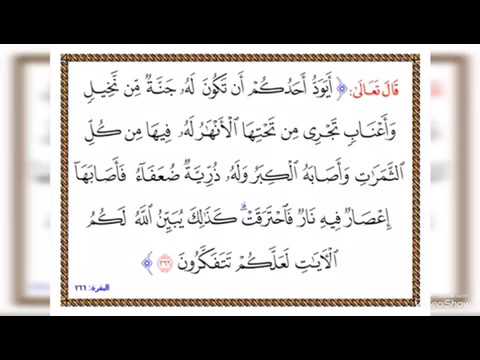 قَالَ تَعَالَىٰ: ﴿ أَيَوَدُّ أَحَدُكُمْ أَن تَكُونَ لَهُۥ جَنَّةٌ مِّن نَّخِيلٍ
وَأَعْنَابٍ تَجْرِى مِن تَحْتِهَا ٱلْأَنْهَٰرُ لَهُۥ فِيهَا مِن كُلِّ
ٱلثَّمَرَٰتِ وَأَصَابَهُ ٱلْكِبَرُ وَلَهُۥ ذُرِّيَّةٌ ضُعَفَآءُ فَأَصَابَهَآ
إِعْصَارٌ فِيهِ نَارٌ فَٱحْتَرَقَتْ ۗ كَذَٰلِكَ يُبَيِّنُ ٱللَّهُ لَكُمُ
ٱلْأٓيَٰتِ لَعَلَّكُمْ تَتَفَكَّرُونَ ٢٦٦ ﴾
البقرة: ٢٦٦
VideoShow